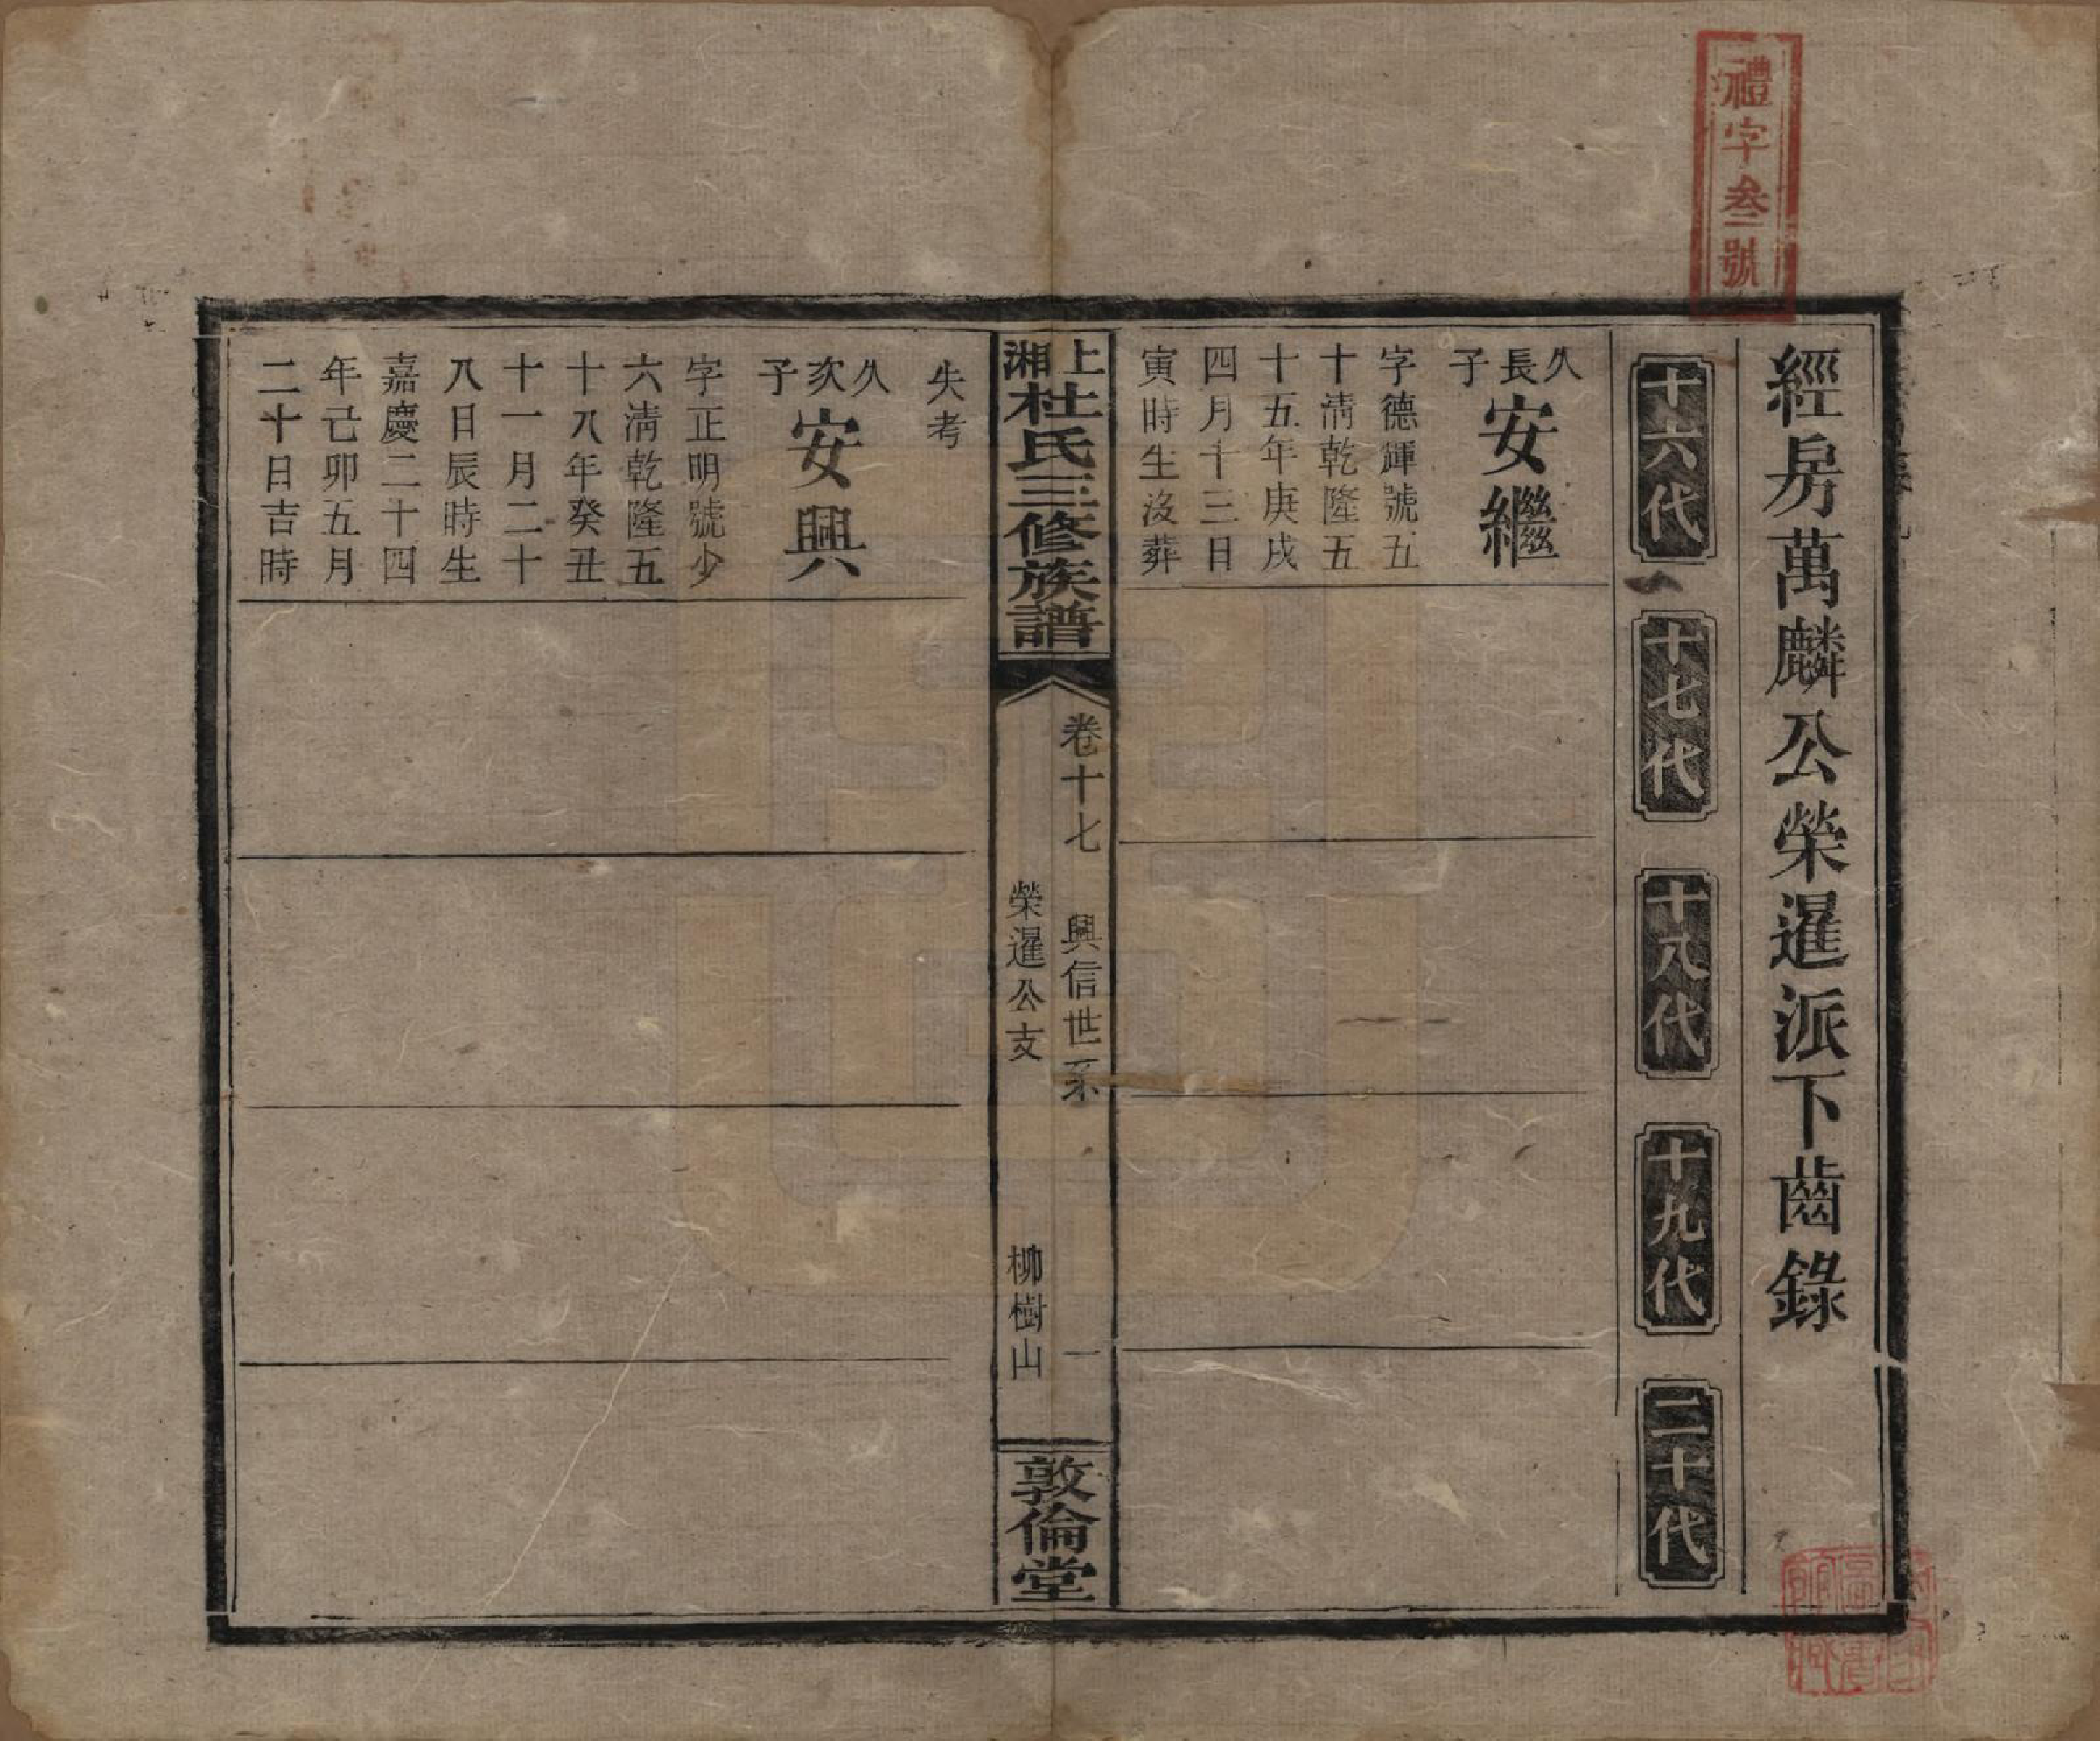 禮字叁號
經房萬麟公榮暹派下齒錄
十六代
十七代
十八代
十九代
二十代
久長子
安繼
字德鍕號五
十清乾隆五
十五年庚戌
四月十三日
寅時生沒葬
上湘杜氏三修族譜
卷十七
興信世系
一
榮暹公支
柳樹山
敦倫堂
失考
久次子
安興
字正明號少
六清乾隆五
十八年癸丑
十一月二十
八日辰時生
嘉慶二十四
年己卯五月
二十日吉時